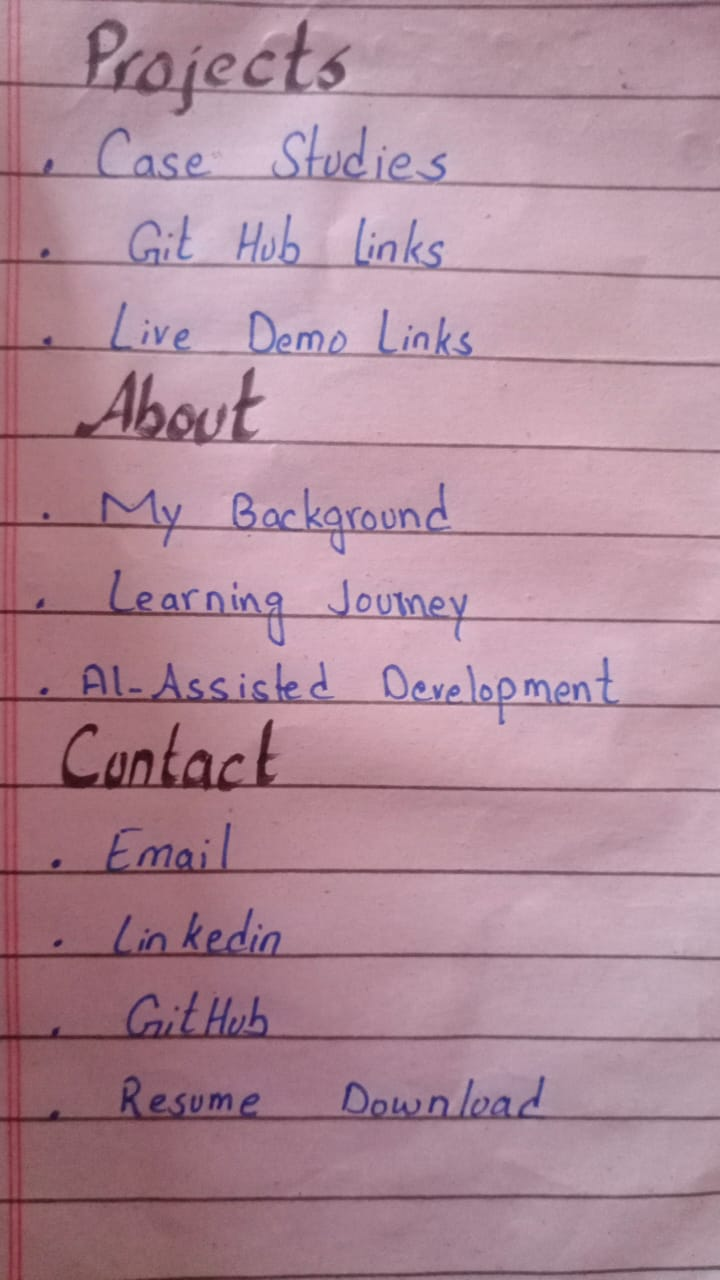 Projects
. Case Studies
. Git Hub links
. Live Demo Links
About
. My Background
. Learning Journey
. AI-Assisted Development
Contact
. Email
. Linkedin
. GitHub
. Resume Download